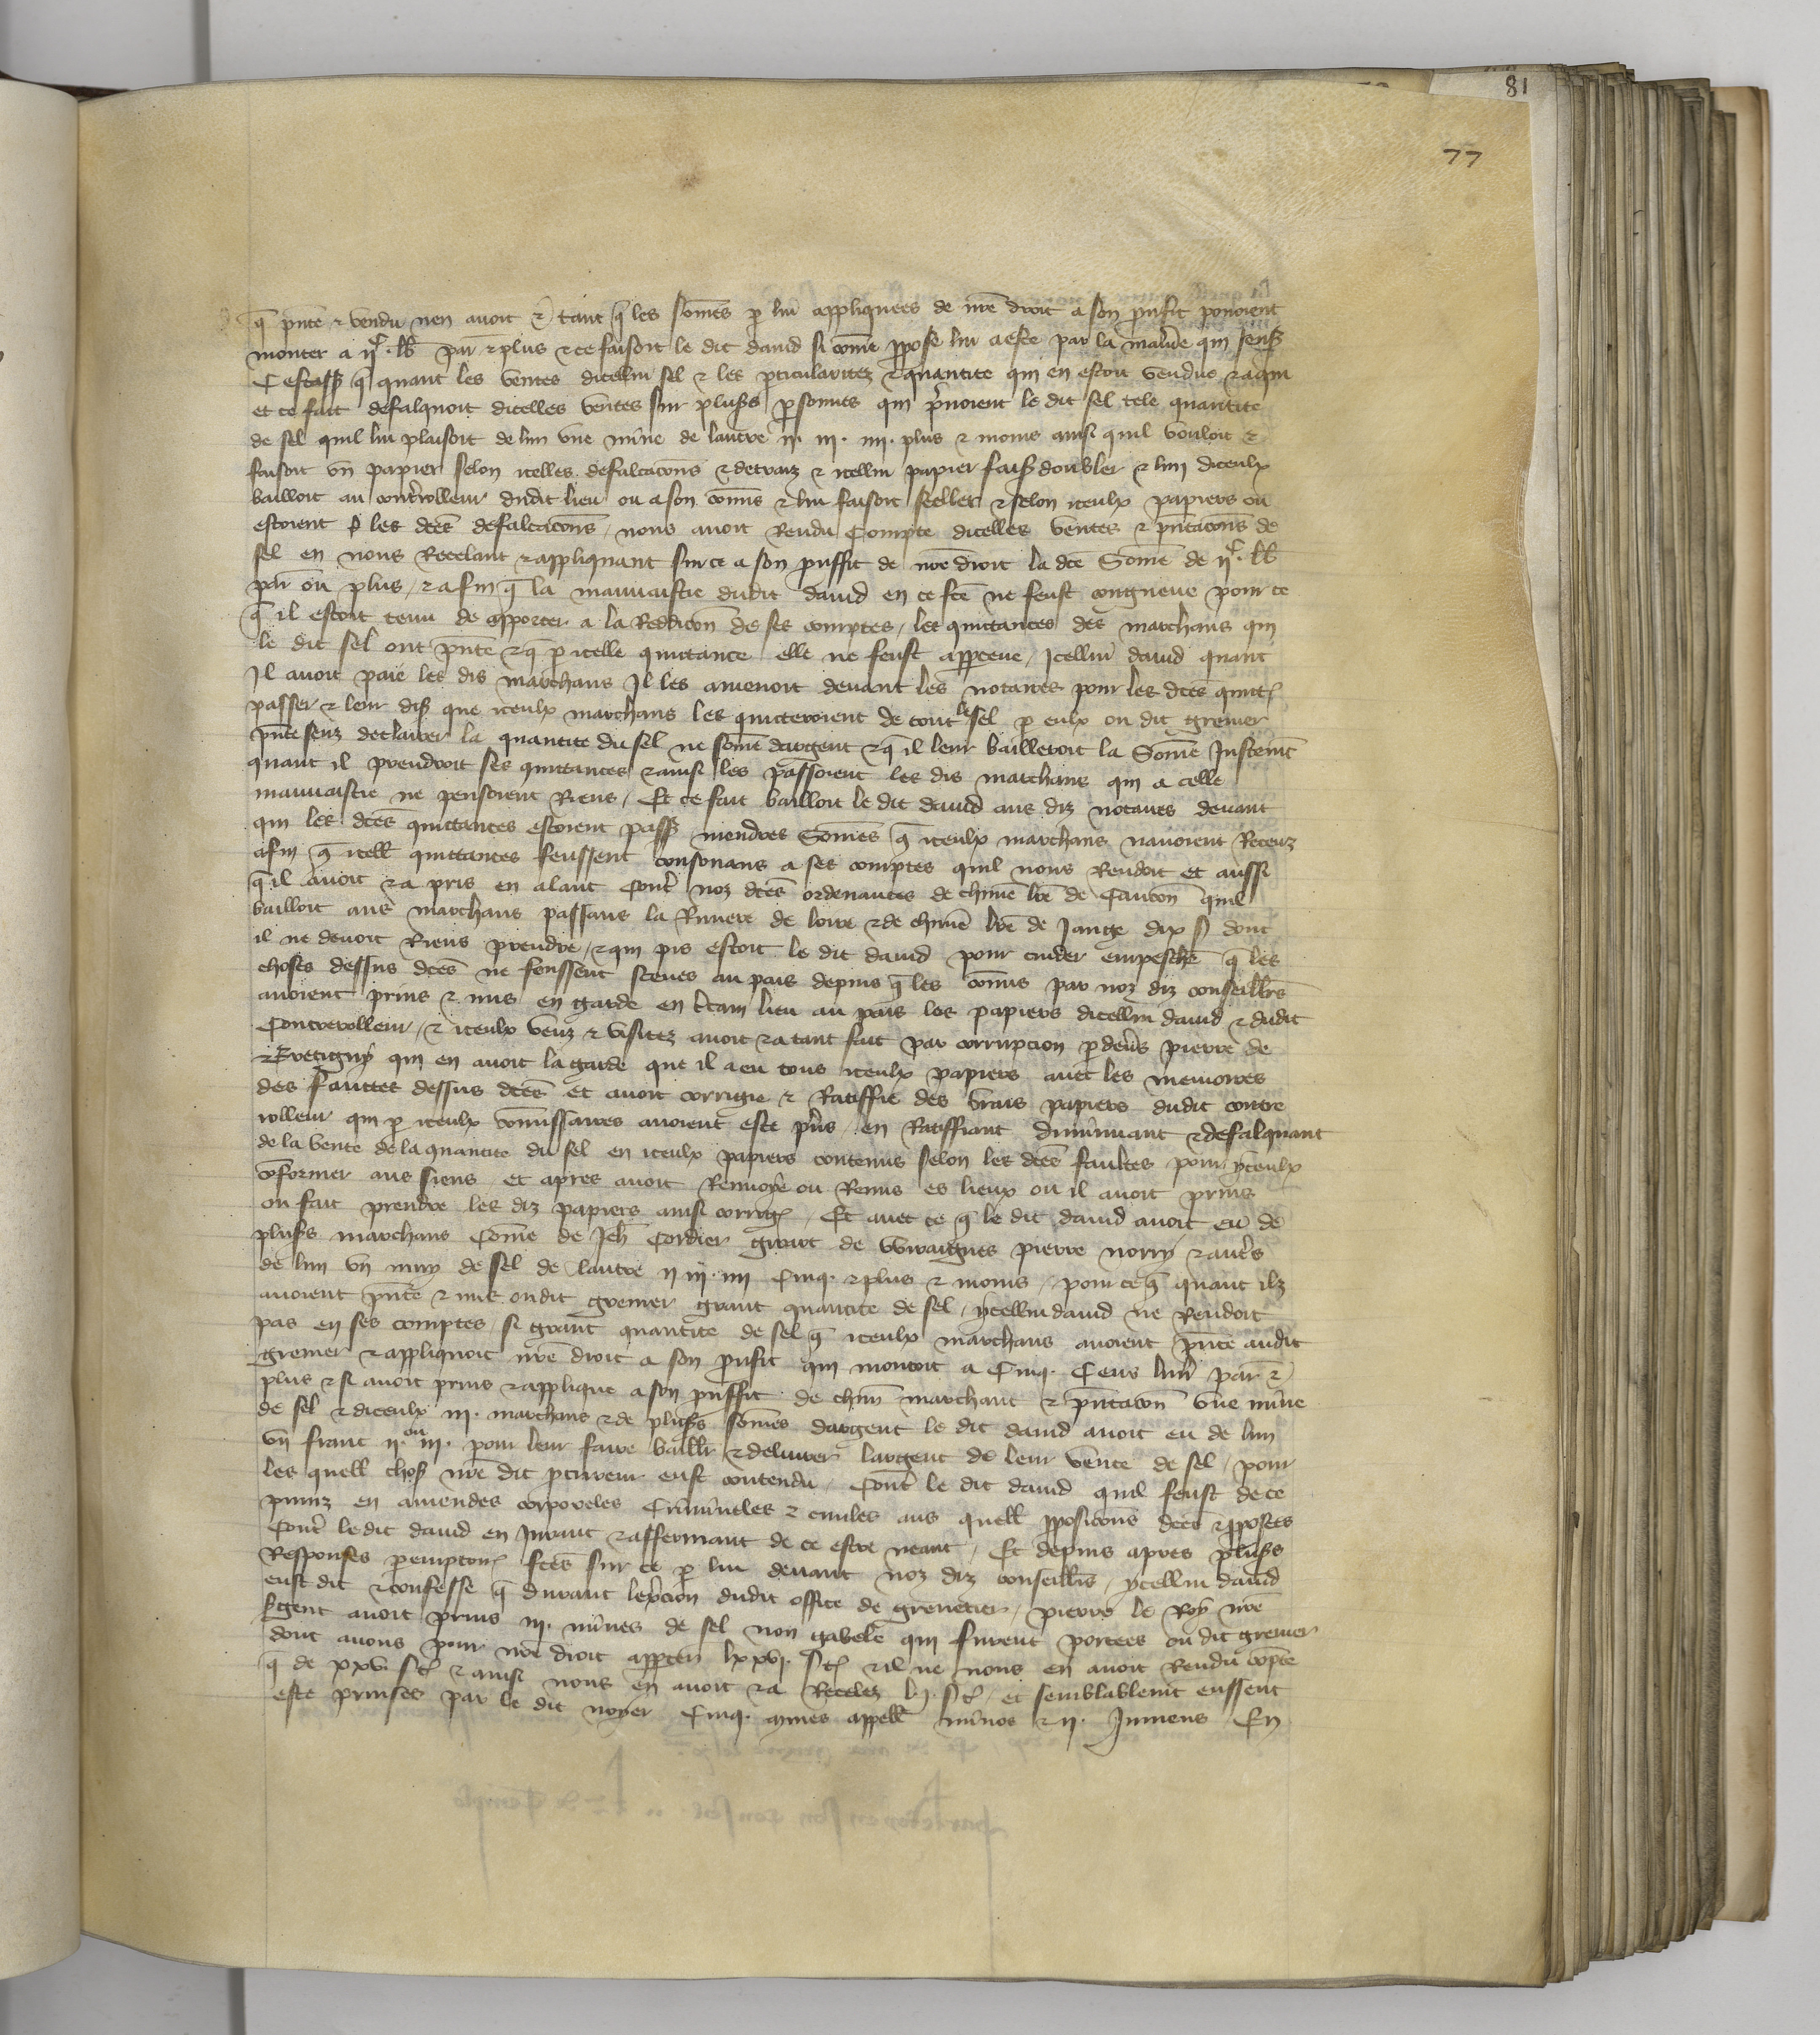 81
77
q̃ pñte & vendu nen avoit & tant q̃ les som̃es p lui appliquees de nr̃e droit a son prufit povoient
monter a ijᶜ. lb par̃ & plus & ce faisoit le dit david si com̃e ppose lui a este par la maniere qui sens
Cestass q̃ quant les ventes dicellui sel & les pticularitez & quantite qui en estoit vendue & a qui
et ce fait defalquoit dicelles ventes sur pluss psonnes qui p̃noient le dit sel tele quantite
de sel quil lui plaisoit de lun une mine de lautre ij. iij. iiij. plus & moins ainsi quil vouloit &
faisoit un papier selon icelles defalcacons & detraiz & icellui papier fais doubler & lun diceulx
bailloit au contrerolleur dudit lieu ou a son com̃is & lui faisoit seeller & selon iceulx papiers ou
estoient les dc̃es defalcacons, nous avoit Rendu Compte dicelles ventes & pñtacons de
sel en nous Recelant & appliquant sur ce a son pruffit de nr̃e droit la dc̃e Som̃e de ijᶜ. lb
par̃ ou plus, & afin q̃ la mauvaistie dudit david en ce fc̃e ne feust congneue pour ce
q̃ il estoit tenu de apporter a la Reddicon de ses comptes, les quittances des marchans qui
le dit sel ont pñte & q̃ p icelle quittance elle ne feust appceue, Icellui david quant
Il avoit paie les dis marchans Il les amenoit devant les notaires pour les dc̃es quitt
passer & leur dis que iceulx marchans les quitteroient de tout le sel p eulx ou dit grenier
pñte senz declairer la quantite du sel ne som̃e dargent & q̃ il leur bailleroit la Som̃e Justemẽt
quant il prendroit ses quittances & ainsi les passoient les dis marchans qui a celle
mauvaistie ne pensoient Riens, Et ce fait bailloit le dit david aus diz notaires devant
qui les dc̃es quittances estoient pass mendres Som̃es q̃ iceulx marchans navoient Receuz
afin q̃ icell quittances feussent consonans a ses comptes quil nous Rendoit et aussi
q̃ il avoit & a pris en alant Contr̃ noz dc̃es ordenances de chũne lr̃e de Caucon quil
bailloit aus marchans passans la Riviere de loire & de chũne lr̃e de Jauge dix s dont
il ne devoit Riens prendre, & qui pis estoit le dit david pour cuider empeschr q̃ les
choses dessus dc̃es ne feussent sceues au pais depuis q̃ les com̃is par noz diz conseillrs
avoient prins & mis en garde en c̃tain lieu au pais les papiers dicellui david & dudit
Contrerolleur, & iceulx veuz & visitez avoit & a tant fait par corrupcion p devs pierre de
Bretigny qui en avoit la garde que il a eu tous iceulx papiers avec les memoires
des faultes dessus dc̃es et avoit corrigie & Ratiffie des vrais papiers dudit contre
rolleur qui p iceulx com̃issaires avoient este p̃ns, en Ratiffiant diminuant & defalquant
de la vente de la quantite du sel en iceulx papiers contenus selon les dc̃es faultes pour yceulx
cõformer aus siens et apres avoit Renvoye ou Remis es lieux ou il avoit prins
ou fait prendre les diz papiers ainsi corrig, Et avec ce q̃ le dit david avoit eu de
pluss marchans Com̃e de Jeh Cordier de pierre norry & autrs
de lun un muy de sel de lautre ij iij. iiij Cinq. & plus & moins, pour ce q̃ quant ilz
avoient pñte & mis ou dit grenier grant quantite de sel, ycellui david ne Rendoit
pas en ses comptes si grant quantite de sel q̃ iceulx marchans avoient pñte audit
grenier & appliquoit nr̃e droit a son prufit qui montoit a Cinq. Cens livr̃ par̃ &
plus & si avoit prins & applique a son pruffit de chũn marchant & pñtacon une mine
de sel & diceulx iij. marchans & de pluss som̃es dargent le dit david avoit eu de lun
un franc ij. ou iij. pour leur faire baillr & delivrer largent de leur vente de sel, pour
les quell chos nr̃e dit pcureur eust contendu, Contr̃ le dit david quil feust de ce
puniz en amendes corporeles Crimineles & civiles aus quell pposicons dc̃es & pposees
Contr̃ le dit david en Jurant & affermant de ce estre neant, Et depuis apres pluss
Responses pemptoir fc̃es sur ce p lui devant noz diz conseillrs, ycellui david
eust dit & confesse q̃ durant lexcicion dudit office de grenetier, pierre le Roy nr̃e
sgent avoit prins iij. mines de sel non gabele qui furent portees ou dit grenier
dont avons pour nr̃e droit apptẽn lxxvj. s̃ & il ne nous en avoit Rendu copte
q̃ de xxv. s̃ & ainsi nous en avoit & a Recelez lj. s̃, et semblablemt eussent
este prinses par le dit noyer Cinq. appell mines & ij. Jumens En